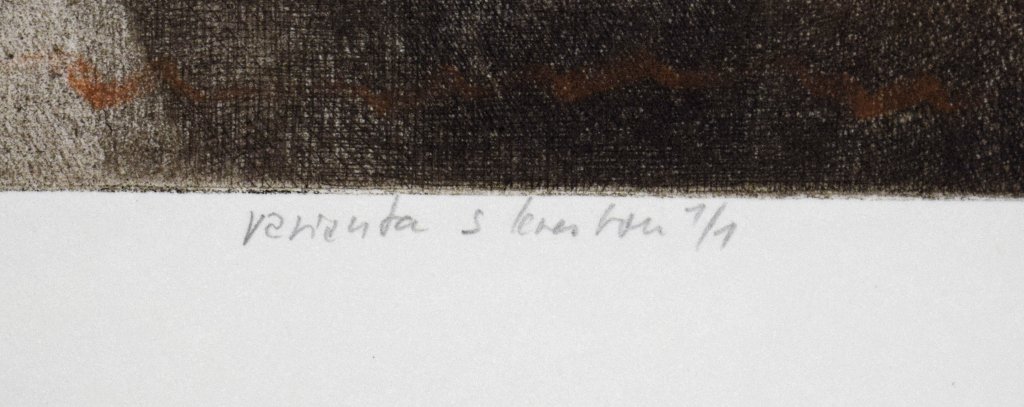 varianta s kresbou 1/1